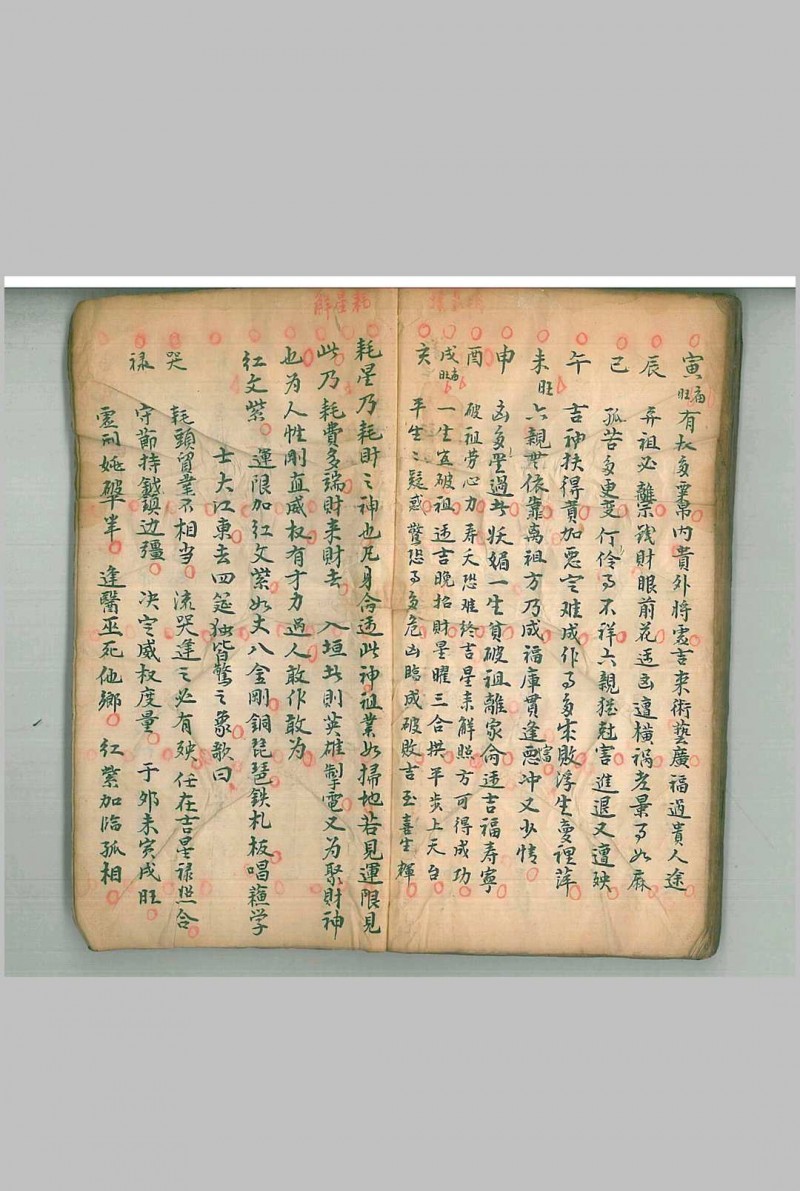 寅 旺 有权多粟帛内貴外將虛言來術藝廣福過貴人途
辰 弃祖必離錢財眼前花逢凶遭橫祸老景事如麻
巳 孤苦多更变行伶事不祥六親猶尅害進退又遭殃
午 吉神扶得貴加惡定难成作事多成敗浮生夢裡萍
未 旺 六親無依靠离祖方乃成福庫貫逢惡冲又少情
申 凶多星過此妖媚一生貧破祖離家命逢吉福寿寧
酉 破祖劳心力寿夭恐难終吉星来解照方可得成功
戌 旺 一生宜破祖逢吉晚招財星曜三合拱平步上天台
亥 平生疑惑驚恐事多危凶臨成破敗吉至喜生輝
耗星解
耗星乃耗財之神也凡身命逢此神祖業如掃地若見運限見
此乃耗費多端財来財去 入垣此則英雄掣電又为聚財神
也为人性剛直威权有才力過人敢作敢为
紅文紫 運限加紅文紫如丈八金剛銅琵琶鉄札板唱蘓学
士大江東去四筵独皆驚之象歌曰
哭 耗頭貿業不相当 流哭逢之必有殃 任在吉星禄照合
禄 守節持鉞鎮边疆 决定威权度量 于夘未寅戌旺
雲刑姚 碎半 逢醫巫死他鄉 紅紫加臨孤相